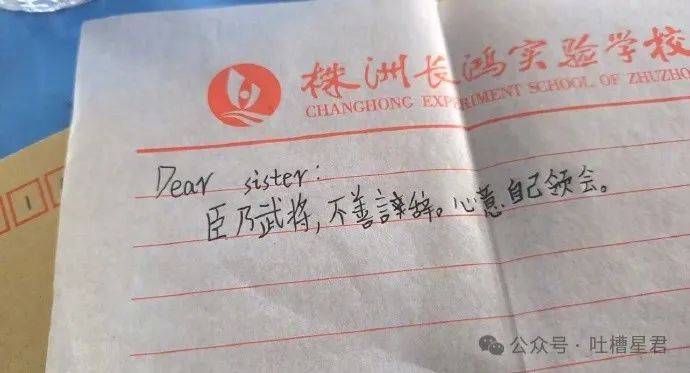 株洲长鸿实验学校
CHANGHONG EXPERIMENT SCHOOL OF ZHUZHO
Dear sister:
臣乃武将，不善諒辞。心意自己领会。
公众号·吐槽星君